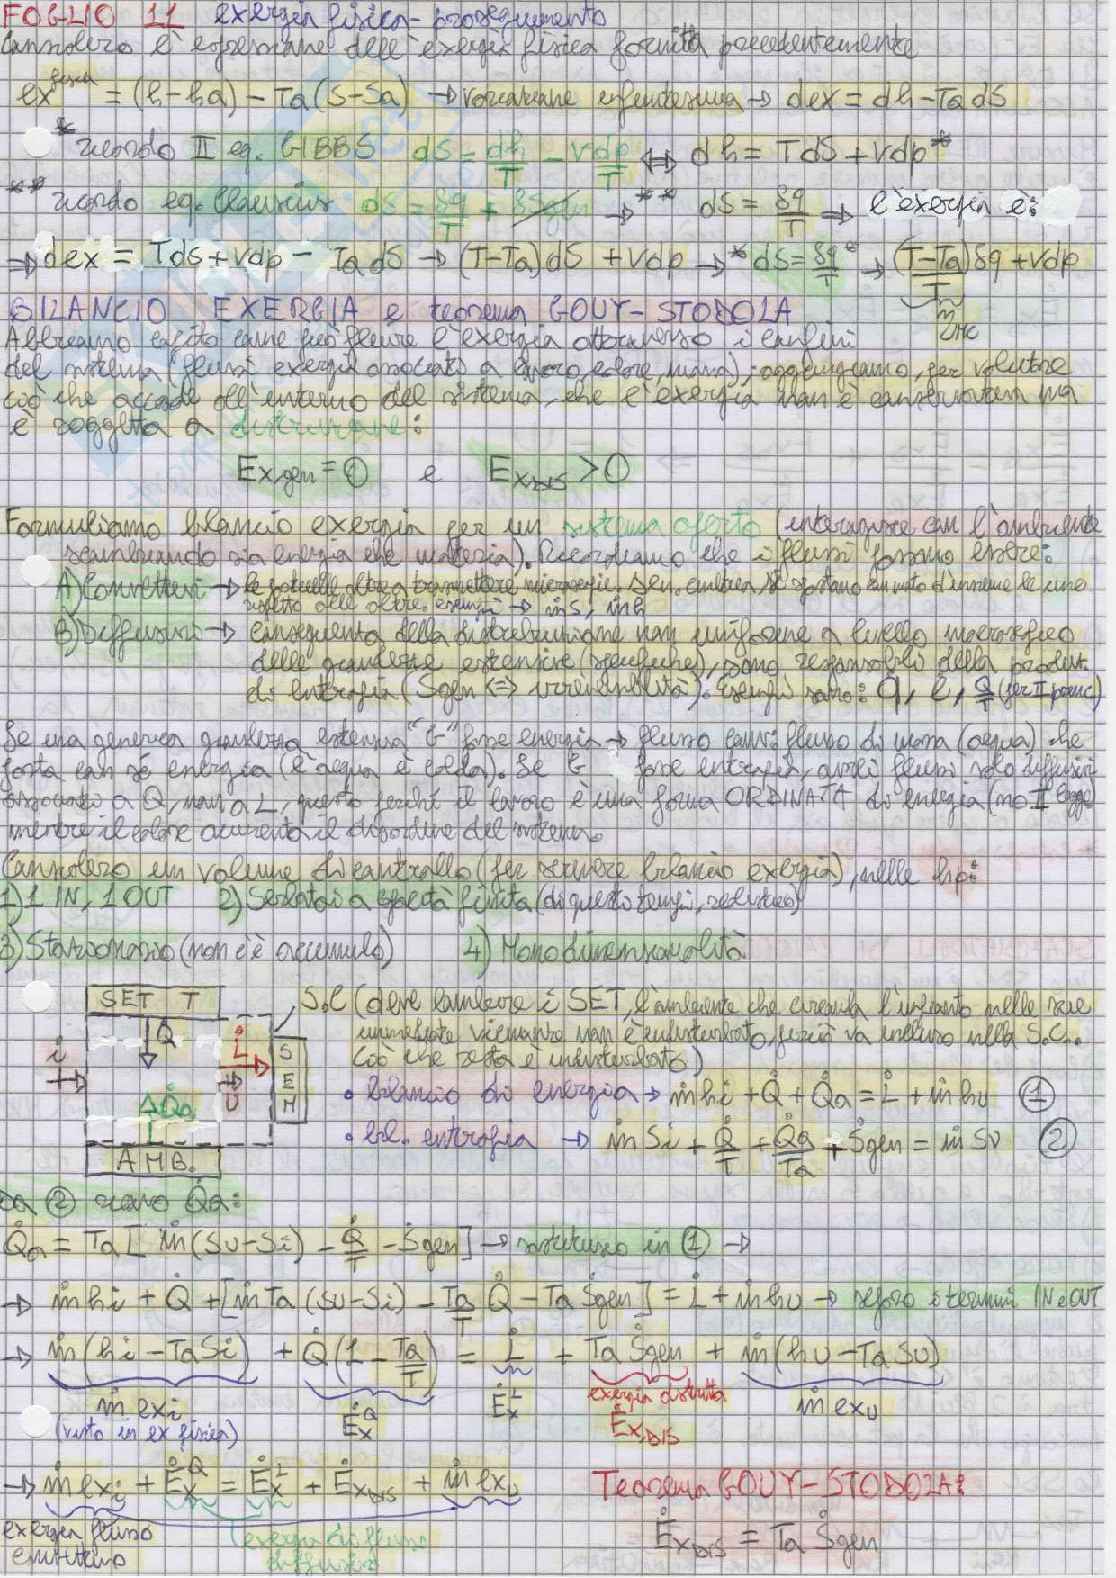 FOGLIO 11 exergia fisica - proseguimento
Considero l'espressione dell'exergia fisica fornita precedentemente
ex^fisica = (h-ha) - Ta(s-sa) → variazione infinitesima → dex = dh - Tads
* ricordo II eq. GIBBS ds = dh/T - vdp/T ⇔ dh = Tds + vdp *
** ricordo eq. Clausius ds = δq/T + δsgen → ** ds = δq/T ⇒ l'exergia è:
⇒ dex = Tds + vdp - Ta ds → (T-Ta)ds + vdp → * ds = δq/T → (T-Ta)/T δq + vdp
BILANCIO EXERGIA e teorema GOUY-STODOLA
Abbiamo capito come può fluire l'exergia attraverso i confini
del sistema (flussi exergia associati a lavoro, calore, massa); aggiungiamo, per valutare
ciò che accade all'interno del sistema, che l'exergia non è conservativa ma
è soggetta a distruzione:
Ex,gen = 0 e Ex,DIS > 0
Formuliamo bilancio exergia per un sistema aperto (interazione con l'ambiente
scambiando sia energia che materia). Ricordiamo che i flussi possono essere:
A) Convettivi → le particelle oltre a trasmettere si spostano con moto d'insieme le une
rispetto alle altre. esempi → ṁs, ṁh
B) Diffusivi → conseguenza della distribuzione non uniforme a livello macroscopico
delle grandezze estensive (specifiche), sono responsabili della produz.
di entropia (Sgen ⇔ irreversibilità). Esempi sono: q, l, q/T (per II princ)
Se una generica grandezza estensiva "G" fosse energia → flusso conv: flusso di massa (acqua) che
porta con sé energia (l'acqua è calda). Se G fosse entropia, avrei flussi solo diffusivi
associati a Q, non a L, questo perché il lavoro è una forma ORDINATA di energia
mentre il calore aumenta il disordine del sistema.
Considero un volume di controllo (per scrivere bilancio exergia), nelle hp:
1) 1 IN, 1 OUT 2) Serbatoi a capacità finita
3) Stazionario (non c'è accumulo) 4) Monodimensionalità
SET T
Q
i
L̇
U
SEM
Q̇a
AMB.
S.C (deve lambire i SET, l'ambiente che circonda l'impianto nelle sue
immediate vicinanze non è indisturbato, perciò va incluso nella S.C.
ciò che resta è indisturbato)
• bilancio di energia → ṁhi + Q̇ + Q̇a = L̇ + ṁhu ①
• bil. entropia → ṁSi + Q̇/T + Q̇a/Ta + Ṡgen = ṁSu ②
da ② ricavo Q̇a:
Q̇a = Ta [ ṁ(Su-Si) - Q̇/T - Ṡgen ] → sostituisco in ① →
→ ṁhi + Q̇ + [ṁTa(Su-Si) - Ta/T Q̇ - Ta Ṡgen] = L̇ + ṁhu → separo i termini IN e OUT
→ ṁ(hi - TaSi) + Q̇(1 - Ta/T) = L̇ + Ta Ṡgen + ṁ(hu - TaSu)
ṁ exi Ėx^Q Ėx^L exergia distrutta Ėx,DIS ṁ exu
(visto in ex fisica)
→ ṁexi + Ėx^Q = Ėx^L + Ėx,DIS + ṁexu
exergia flusso convettivo
exergia di flusso diffusivo
Teorema GOUY-STODOLA:
Ėx,DIS = Ta Ṡgen